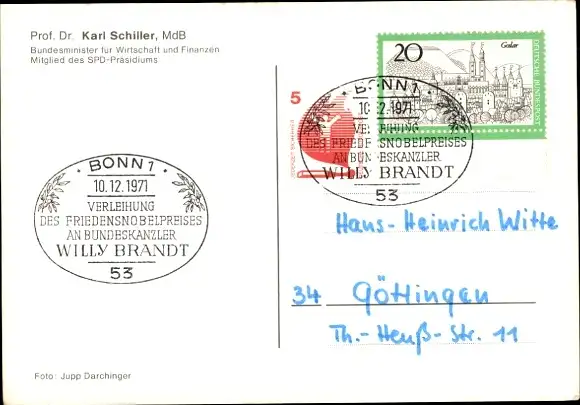 Prof. Dr. Karl Schiller, MdB
Bundesminister für Wirtschaft und Finanzen
Mitglied des SPD-Präsidiums
20
Goslar
DEUTSCHE BUNDESPOST
5
BONN 1
10.12.1971
VERLEIHUNG
DES FRIEDENSNOBELPREISES
AN BUNDESKANZLER
WILLY BRANDT
53
BONN 1
10.12.1971
VERLEIHUNG
DES FRIEDENSNOBELPREISES
AN BUNDESKANZLER
WILLY BRANDT
53
Hans-Heinrich Witte
34 Göttingen
Th.-Heuß-Str. 11
Foto: Jupp Darchinger